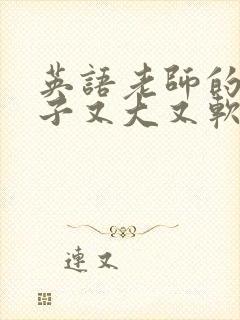 英語老師的
子又大又軟
連又